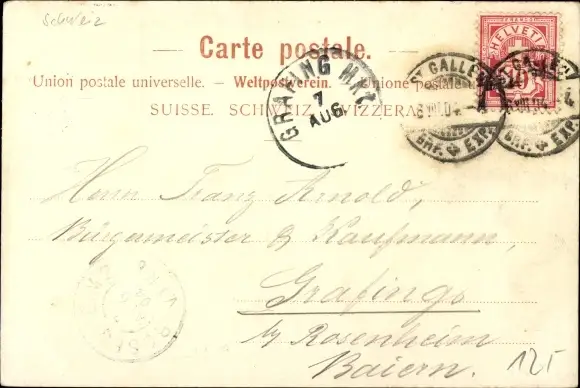 Schweiz
Carte postale.
Union postale universelle. – Weltpostverein. – Unione postale
SUISSE. SCHWEIZ. SVIZZERA.
HELVETIA
FRANCO
10
ST. GALLEN
BRF. EXP.
GALLEN
BRF. EXP.
GRAFING MKT.
7
AUG.
Herrn Franz Arnold,
Bürgermeister & Kaufmann,
Grafing
b/ Rosenheim
Baiern.
125